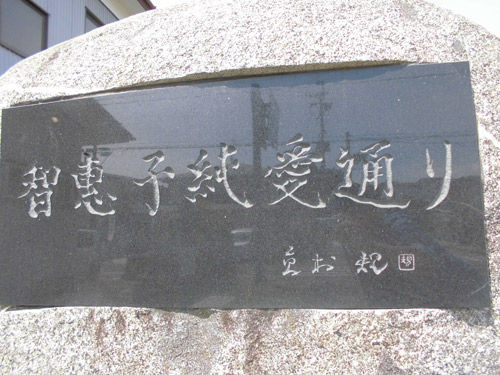 智惠子純愛通り